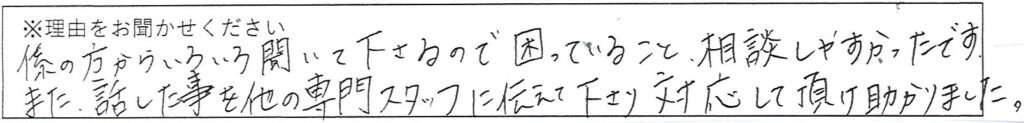 ※理由をお聞かせください
係の方からいろいろ聞いて下さるので困っていること、相談しやすかったです。
また、話した事を他の専門スタッフに伝えて下さり対応して頂け助かりました。